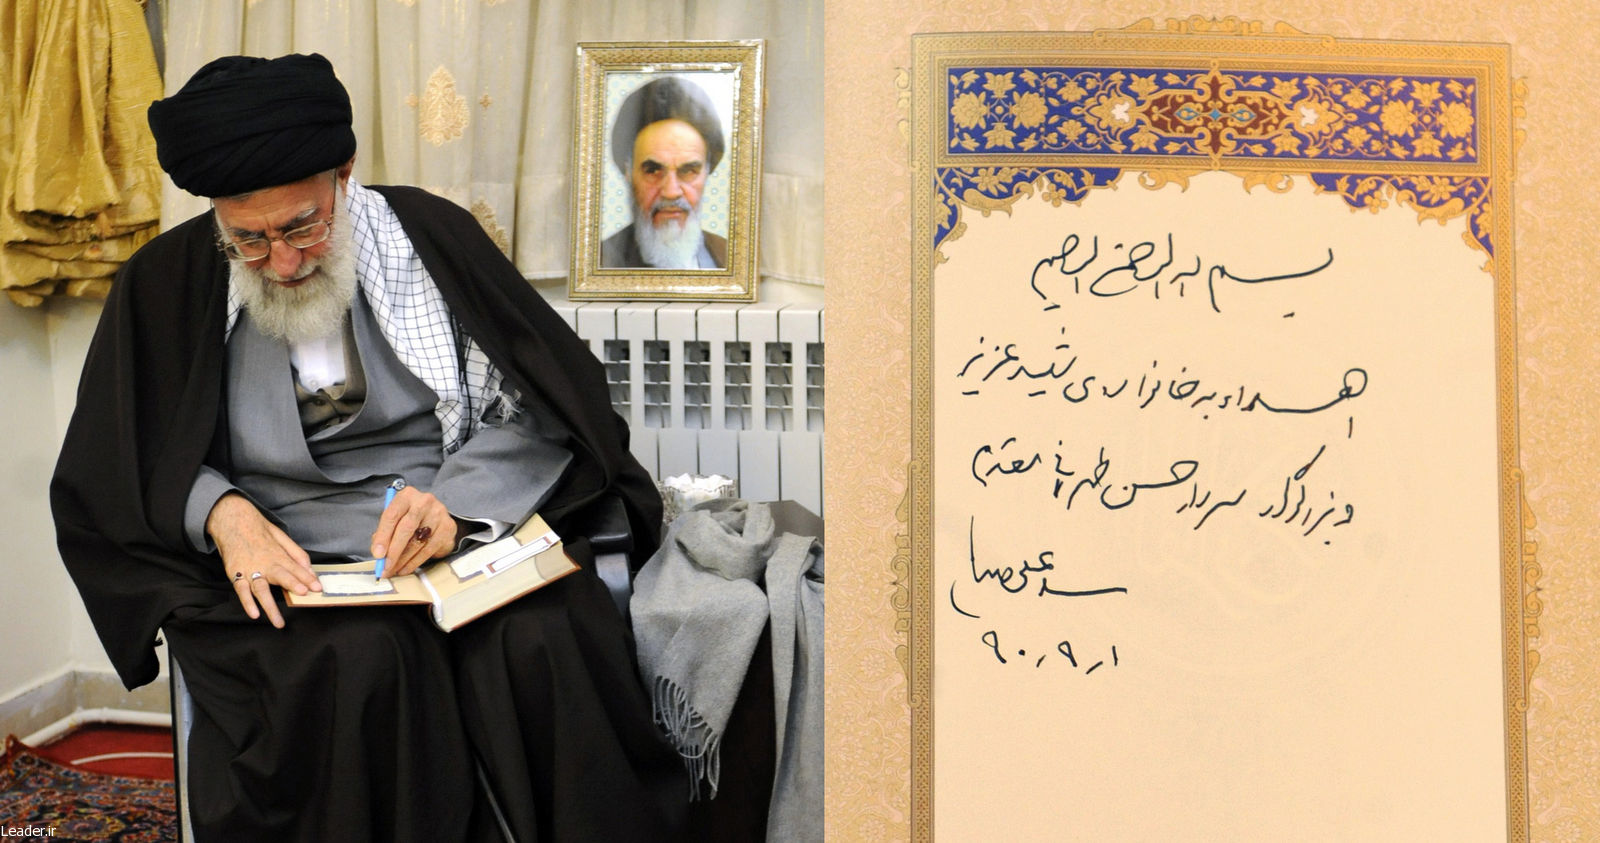 بسم الله الرحمن الرحیم
اهداء به خانواده‌ی شهید عزیز
و بزرگوار سردار حسن طهرانی مقدم
سید علی خامنه‌ای
۹۰٫۹٫۱
Leader.ir